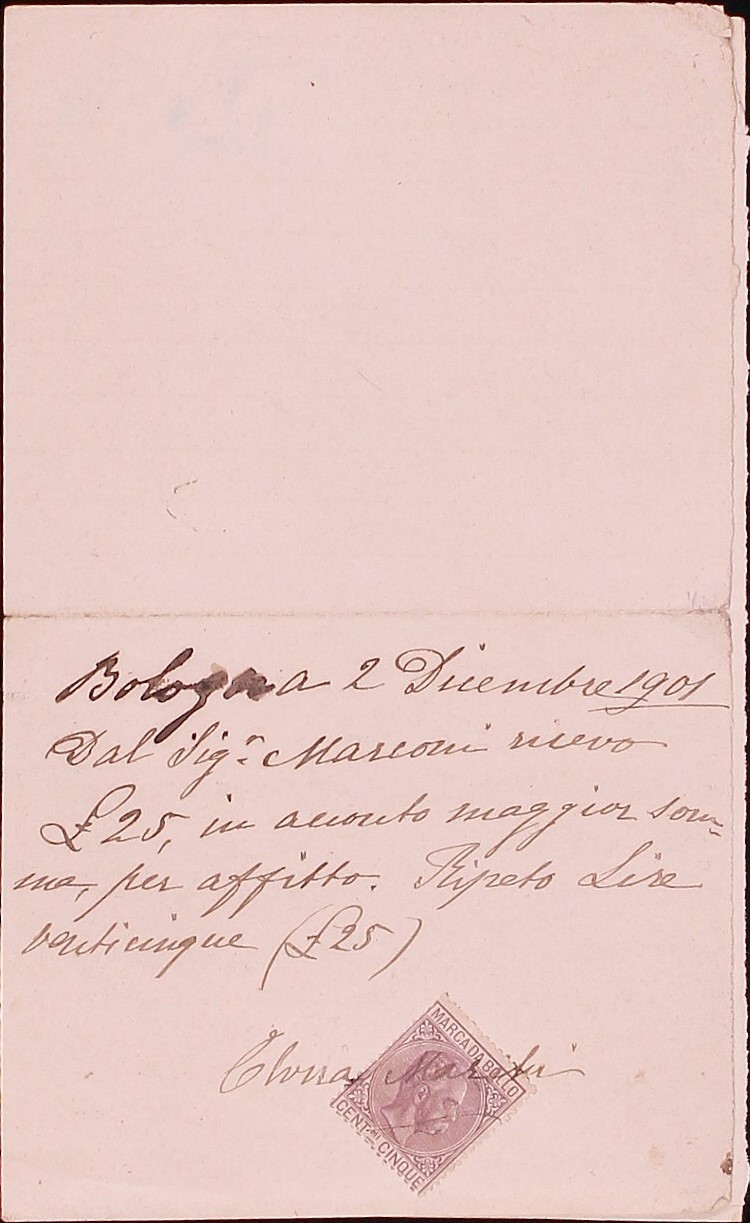 Bologna 2 Dicembre 1901
Dal Sig.r Marconi ricevo
£ 25, in acconto maggior som-
ma, per affitto. Ripeto Lire
venticinque (£ 25)
MARCA DA BOLLO
CENT.MI CINQUE